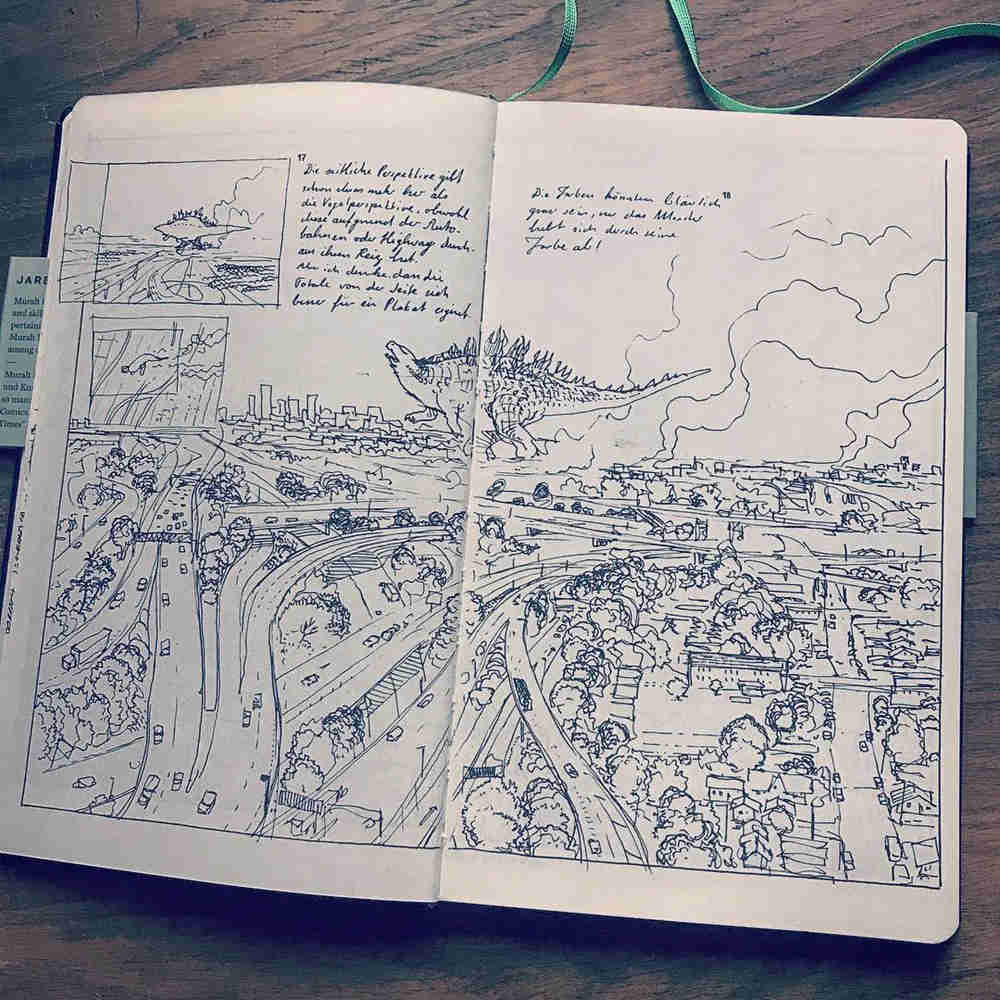 17
Die seitliche Perspektive gibt
schon etwas mehr her als
die Vogelperspektive, obwohl
diese aufgrund der Auto-
bahnen oder Highway durch-
aus ihren Reiz hat.
ich denke, dass die
Totale von der Seite sich
besser für ein Plakat eignet
18
Die Farben könnten bläulich
grau sein, nur das Monster
hebt sich durch seine
Farbe ab!
JARE
Murah
and skil
pertaini
Murah
among
Murah
und Ku
so man
Comics
Times"